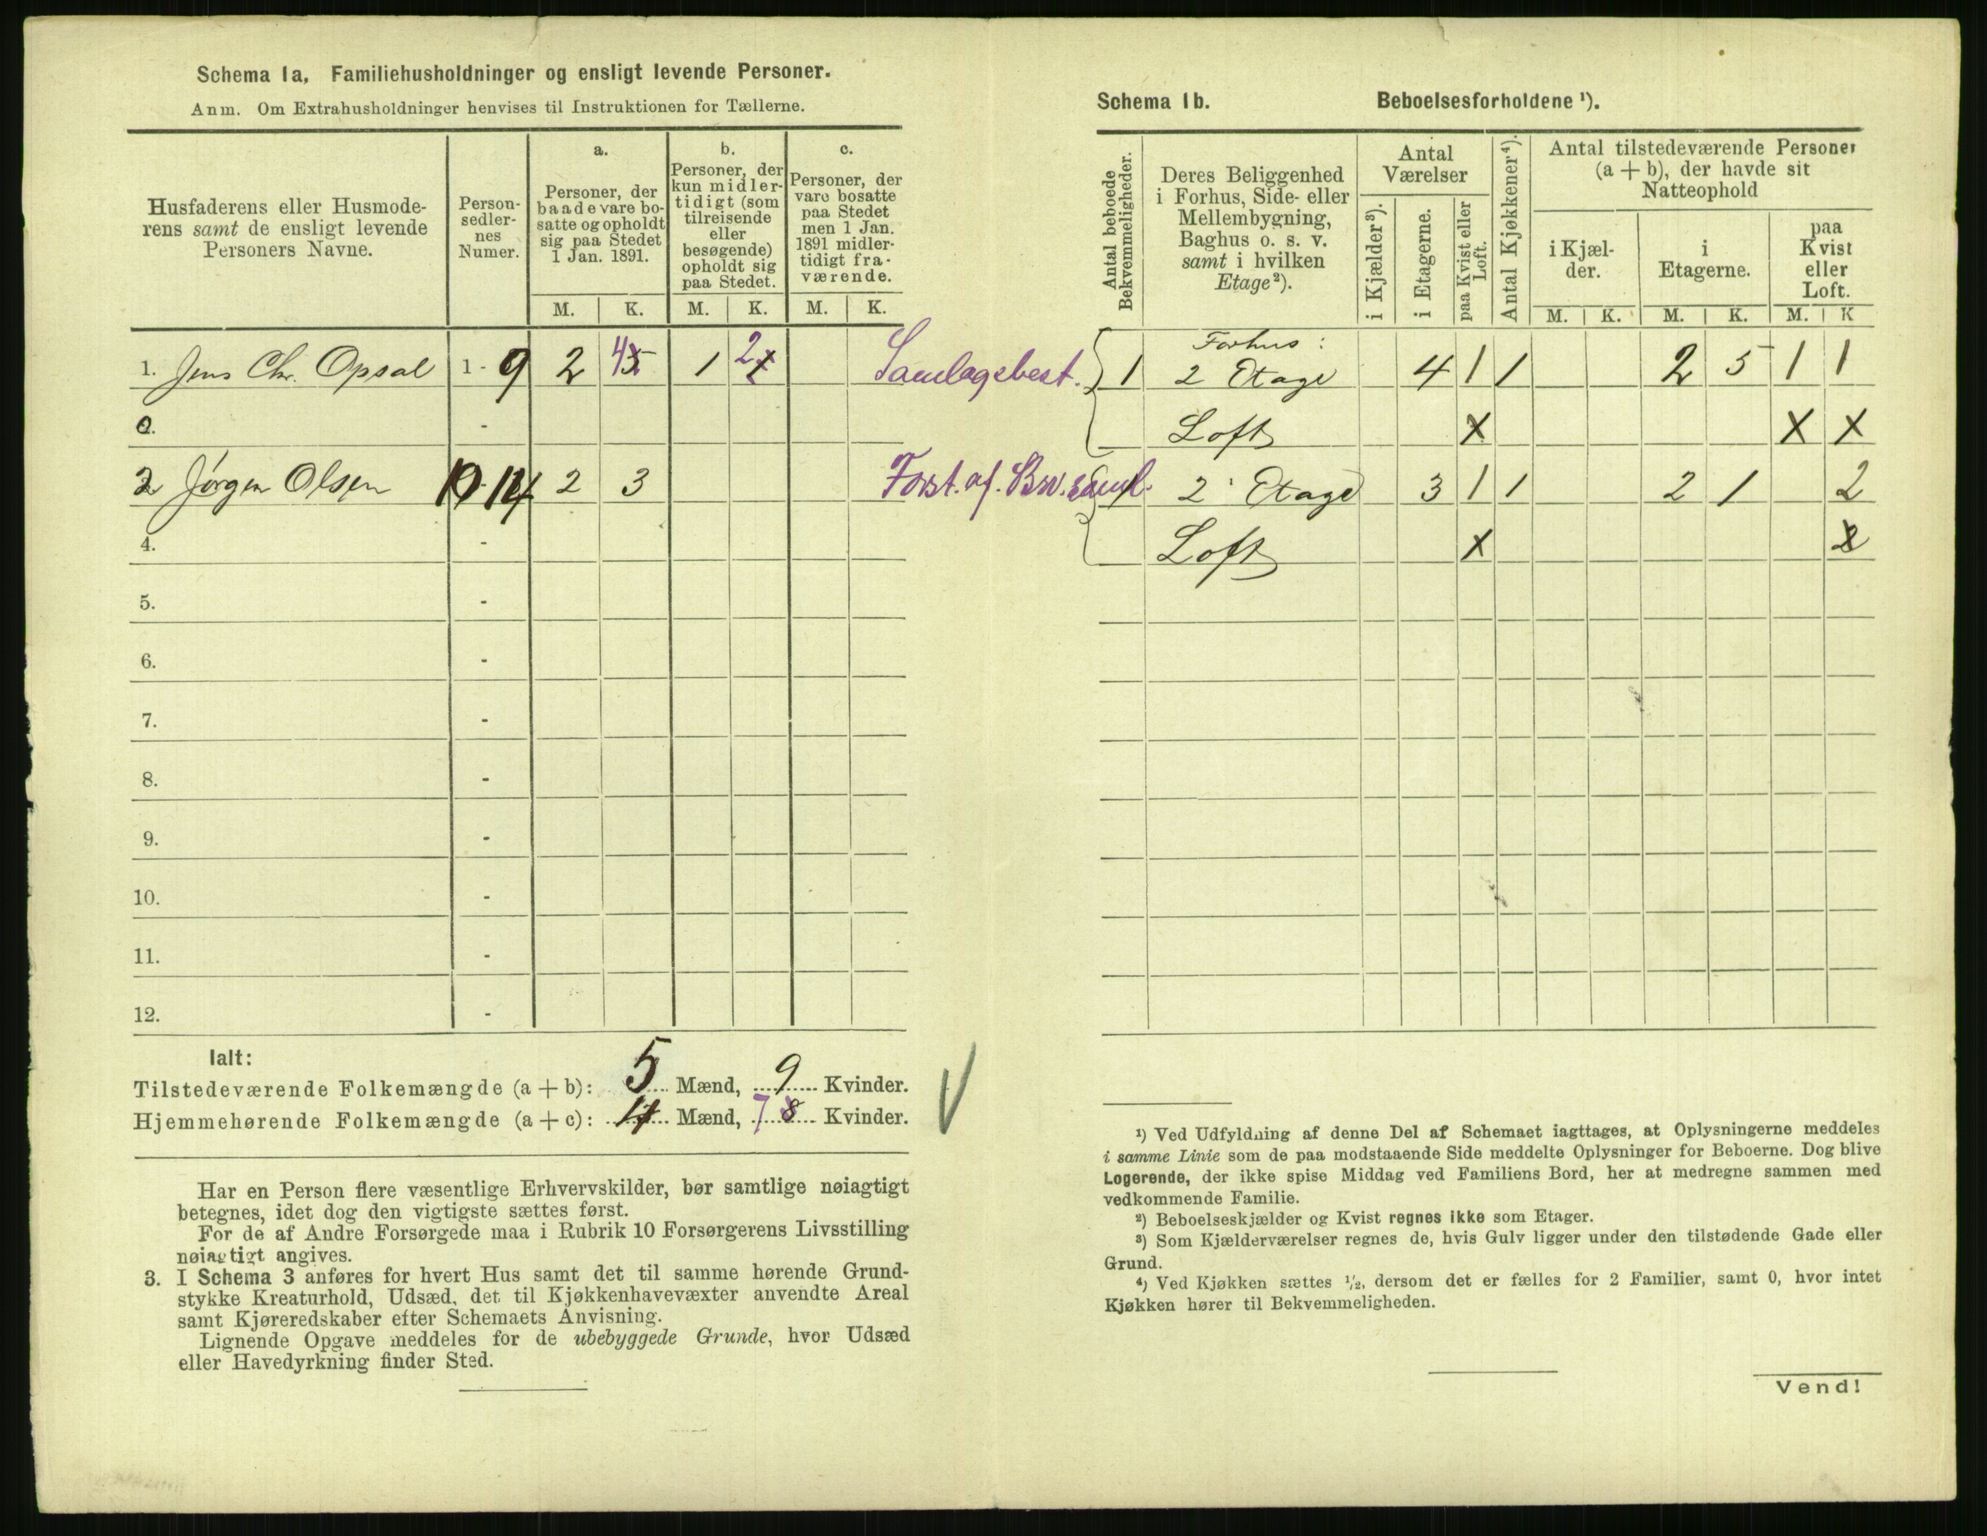 Schema 1a, Familiehusholdninger og ensligt levende Personer.
Anm. Om Extrahusholdninger henvises til Instruktionen for Tællerne.
Husfaderens eller Husmode-
rens samt de ensligt levende
Personers Navne.
Person-
sedler-
nes
Numer.
a.
Personer, der
baade vare bo-
satte og opholdt
sig paa Stedet
1 Jan. 1891.
b.
Personer, der
kun midler-
tidigt (som
tilreisende
eller
besøgende)
opholdt sig
paa Stedet.
c.
Personer, der
vare bosatte
paa Stedet
men 1 Jan.
1891 midler-
tidigt fra-
værende.
M. K. M. K. M. K.
1. Jens Chr. Opsal 1 - 9 2 4 5 1 2 1 Samlagsbest.
2. -
2 Jørgen Olsen 10 - 14 2 3 Forst. af. Brv. saml.
4. -
5. -
6. -
7. -
8. -
9. -
10. -
11. -
12. -
Ialt:
Tilstedeværende Folkemængde (a + b): 5 Mænd, 9 Kvinder.
Hjemmehørende Folkemængde (a + c): 4 Mænd, 7 8 Kvinder.
Har en Person flere væsentlige Erhvervskilder, bør samtlige nøiagtigt
betegnes, idet dog den vigtigste sættes først.
For de af Andre Forsørgede maa i Rubrik 10 Forsørgerens Livsstilling
nøiagtigt angives.
3. I Schema 3 anføres for hvert Hus samt det til samme hørende Grund-
stykke Kreaturhold, Udsæd, det til Kjøkkenhavevæxter anvendte Areal
samt Kjøreredskaber efter Schemaets Anvisning.
Lignende Opgave meddeles for de ubebyggede Grunde, hvor Udsæd
eller Havedyrkning finder Sted.
Schema 1b. Beboelsesforholdene ¹).
Antal beboede
Bekvemmeligheder.
Deres Beliggenhed
i Forhus, Side- eller
Mellembygning,
Baghus o. s. v.
samt i hvilken
Etage ²).
Antal
Værelser
i Kjælder ³).
i Etagerne.
paa Kvist eller
Loft.
Antal Kjøkkener ⁴).
Antal tilstedeværende Personer
(a + b), der havde sit
Natteophold
i Kjæl-
der.
i
Etagerne.
paa
Kvist
eller
Loft.
M. K. M. K. M. K
Forhus :
1 2 Etage 4 1 1 2 5 1 1
Loft x x x
1 2 Etage 3 1 1 2 1 2
Loft x 2
¹) Ved Udfyldning af denne Del af Schemaet iagttages, at Oplysningerne meddeles
i samme Linie som de paa modstaaende Side meddelte Oplysninger for Beboerne. Dog blive
Logerende, der ikke spise Middag ved Familiens Bord, her at medregne sammen med
vedkommende Familie.
²) Beboelseskjælder og Kvist regnes ikke som Etager.
³) Som Kjælderværelser regnes de, hvis Gulv ligger under den tilstødende Gade eller
Grund.
⁴) Ved Kjøkken sættes ½, dersom det er fælles for 2 Familier, samt 0, hvor intet
Kjøkken hører til Bekvemmeligheden.
Vend!